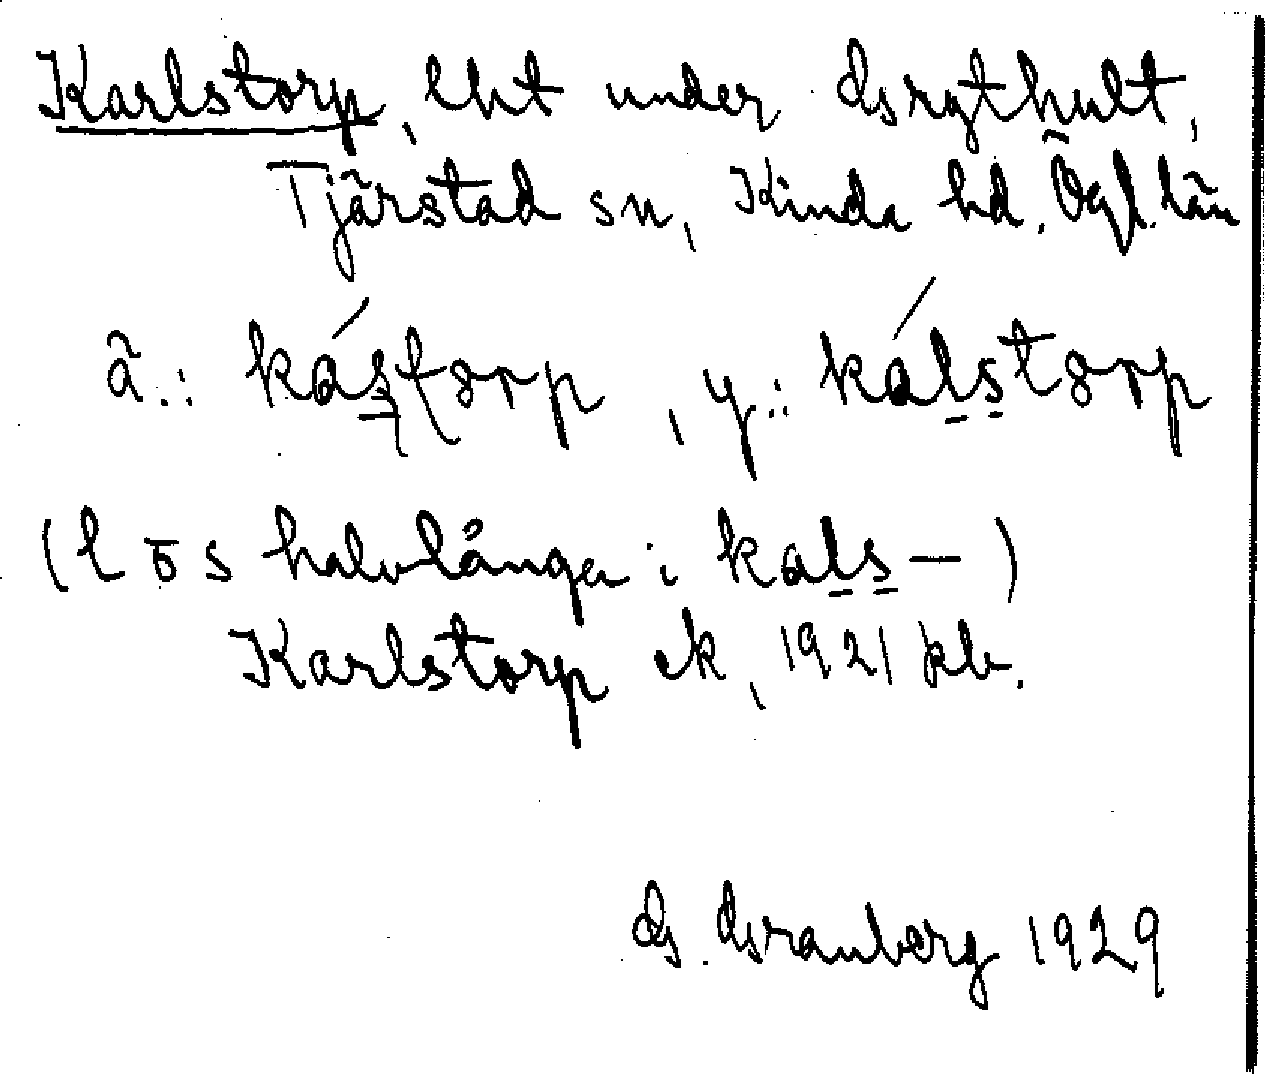 Karlstorp, lht under Grythult,
Tjärstad sn, Kinda hd. Ögl. län
ä.: kástorp, y.: kálstorp
(l o s halvlånga i kals-)
Karlstorp ek, 1921 kb.
G. Granberg 1929